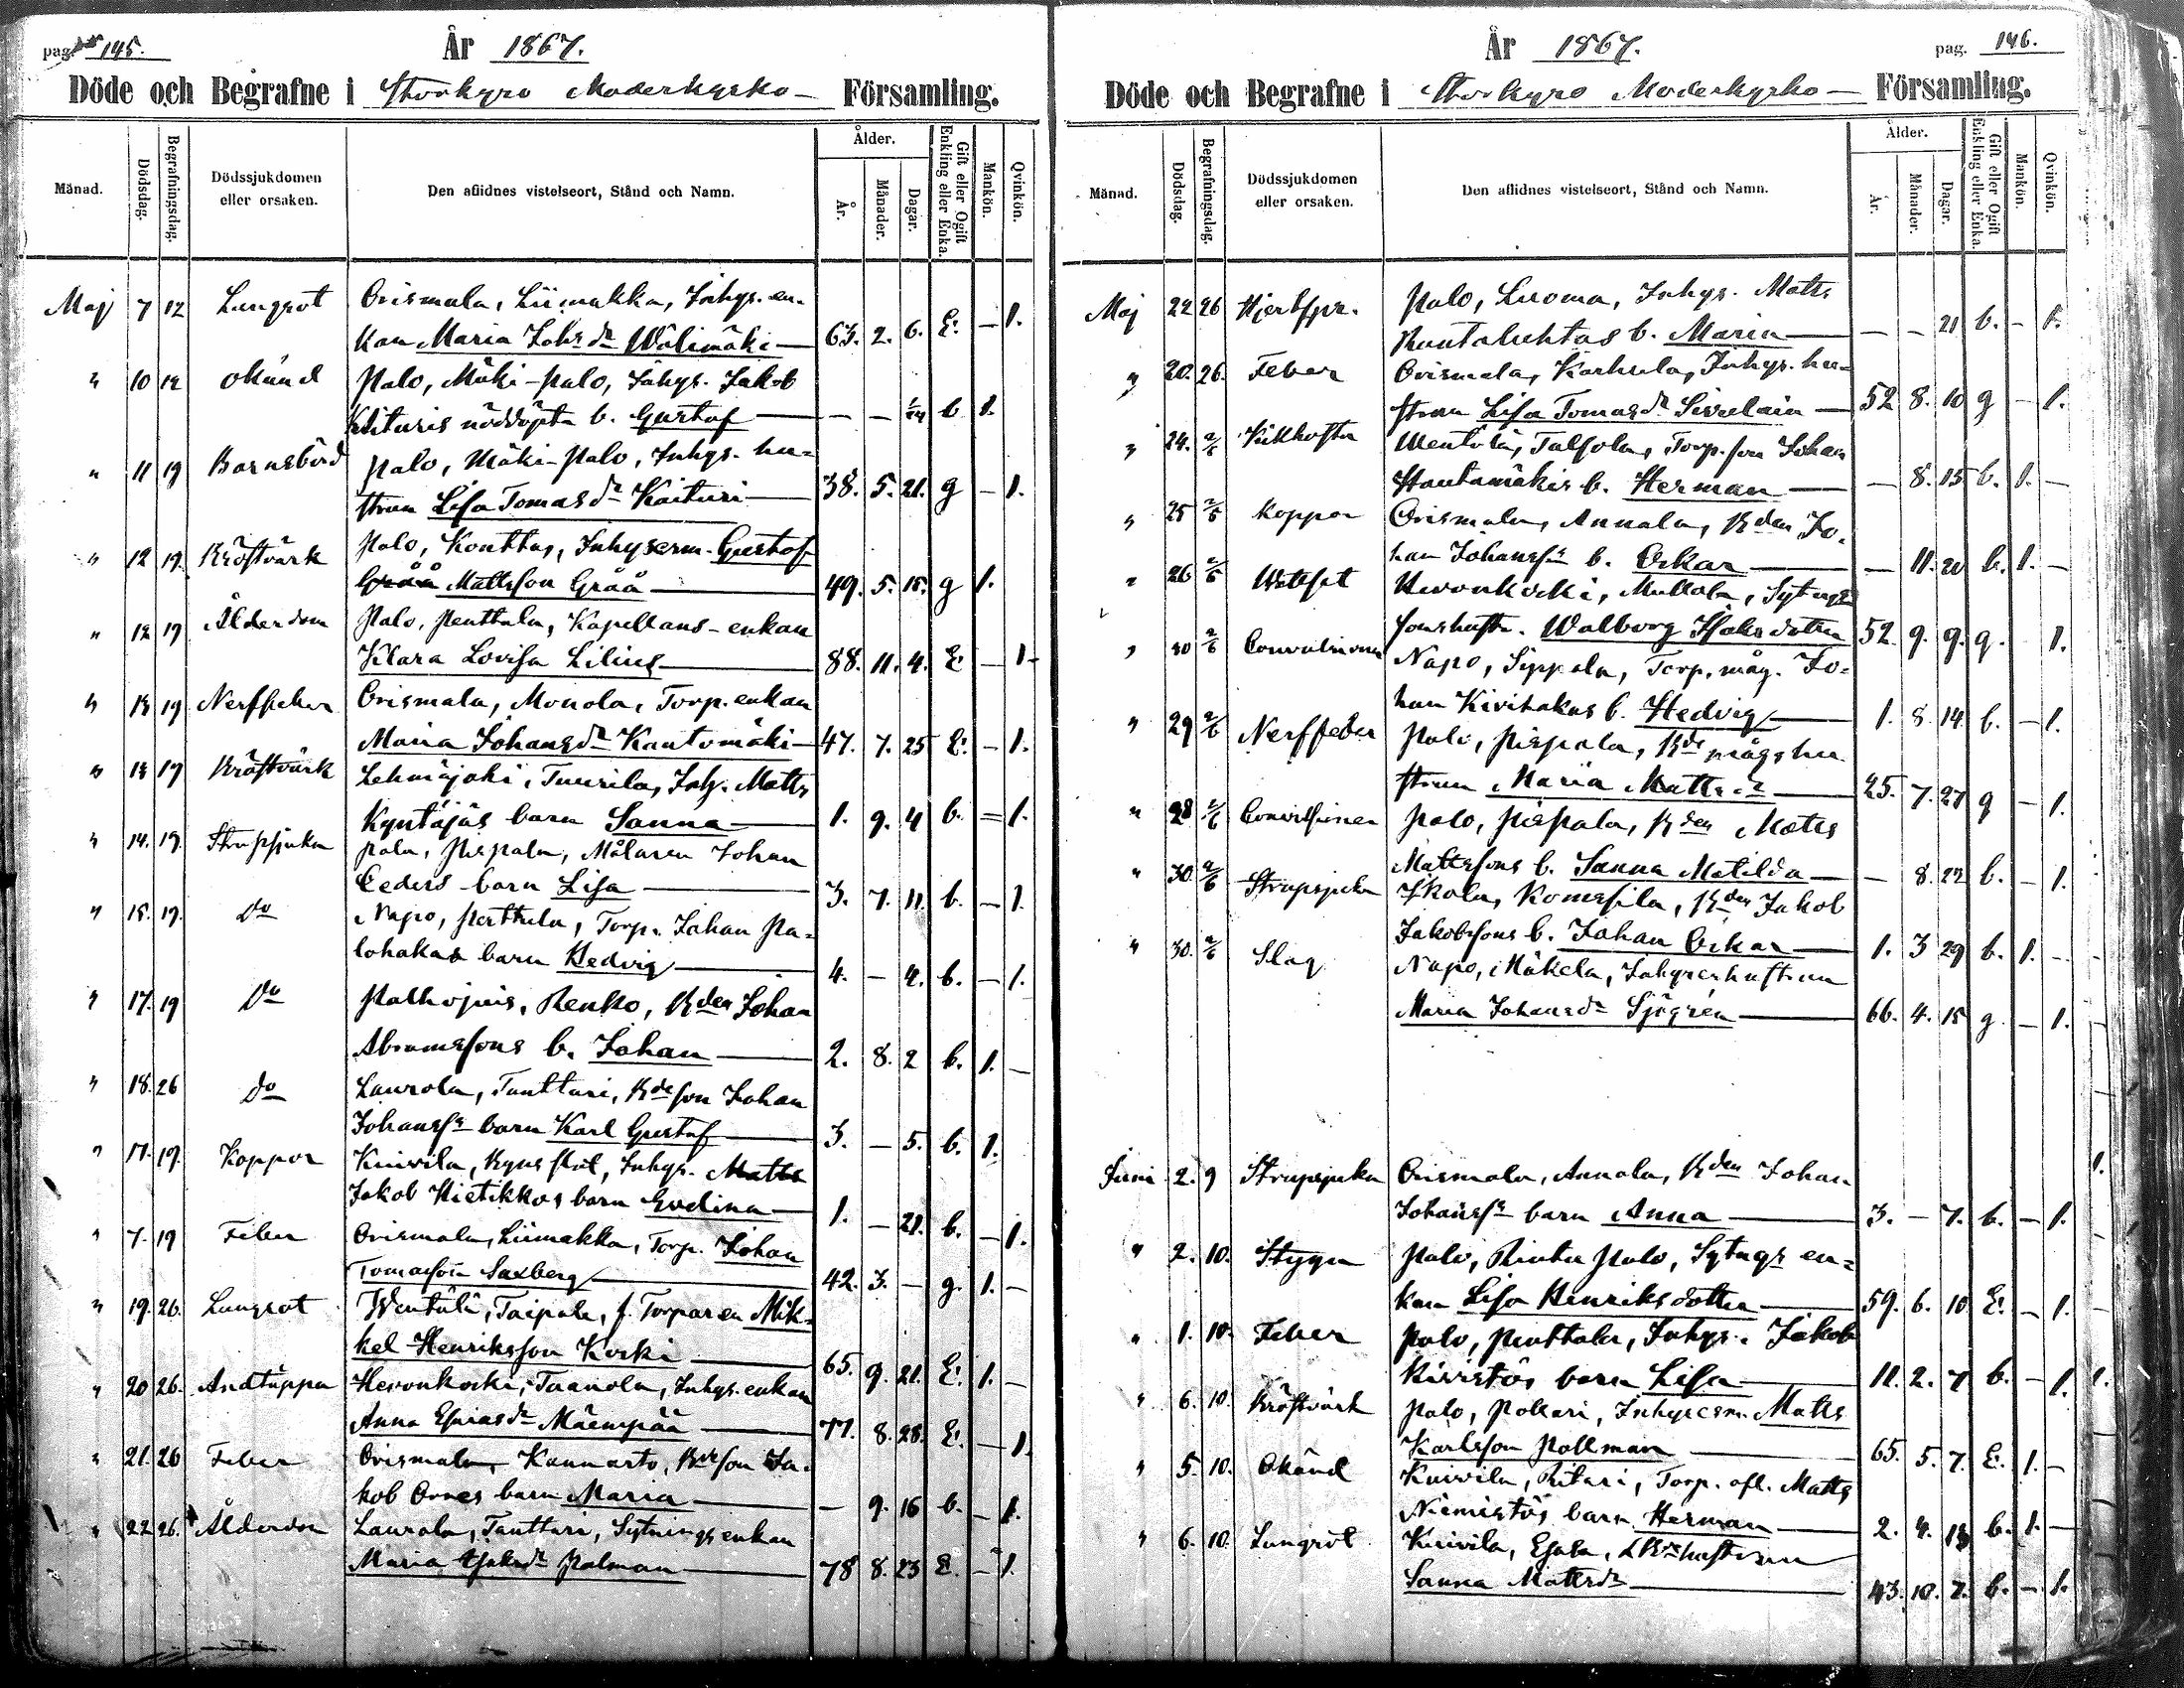 pag. 145.
År 1867.
Döde och Begrafne i Storkyro Moderkyrko- Församling.
Månad. Dödsdag. Begrafningsdag. Dödssjukdomen eller orsaken. Den aflidnes vistelseort, Stånd och Namn. Ålder. År. Månader. Dagar. Gift eller Ogift Enkling eller Enka. Mankön. Qvinkön.
Maj 7 12 Lungsot Orismala, Liimakka, Inhys. en-
kan Maria Johsdr Wälimäki 63. 2. 6. E. – 1.
" 10 12 okänd Palo, Mäki-palo, Inhys. Jakob
Kaituris nöddöpta b. Gustaf – – 1/24 b 1.
" 11 19 Barnsbörd Palo, Mäki-Palo, Inhys. hu-
strun Lisa Tomasdr Kaituri 38. 5. 21. g – 1.
" 12 19. Kräftvärk Palo, Konttas, Inhysesm. Gustaf
Gråå Mattsson Gråå 49. 5. 15. g 1.
" 12 19 Ålderdom Palo, Penttala, Kapellans-enkan
Klara Lovisa Lilius 88. 11. 4. E. – 1.
" 13 19 Nerffeber Orismala, Monola, Torp. enkan
Maria Johansdr Kantomäki 47. 7. 25 E. – 1.
" 13 19 Kräftvärk Lehmäjoki, Tuurila, Inh. Matts
Kyntäjäs barn Sanna 1. 9. 4 b. – 1.
" 14. 19. Strupsjuka Palo, Pispala, Målaren Johan
Ceders barn Lisa 3. 7. 11. b. – 1.
" 15. 19. Do Napo, Perttula, Torp. Johan Pa-
lohakas barn Hedvig 4. – 4. b. – 1.
" 17. 19 Do Palhojais, Renko, Bden Johan
Abramssons b. Johan 2. 8. 2 b. 1. –
" 18. 26 Do Laurola, Tanttari, Bdeson Johan
Johanss barn Karl Gustaf 3. – 5. b. 1.
" 17. 19. Koppor Kuivila, Inhys. Matts
Jakob Hietikkos barn Evelina 1. – 21. b. – 1.
" 7. 19 Feber Orismala, Liimakka, Torp. Johan
Tomasson Saxberg 42. 3. – g. 1. –
" 19. 26. Lungsot Wentälä, Taipale, f. Torparen Mik-
kel Henriksson Koski 65. 9. 21. E. 1. –
" 20 26. Andtäppa Hevonkoski, Taanola, Inhys. enkan
Anna Esaiasdr Mäenpää 77. 8. 28. E. – 1.
" 21. 26 Feber Orismala, Kannasto, Bdeson Ja-
kob Ornes barn Maria – 9. 16 b. – 1.
" 22 26. Ålderdom Laurola, Tanttari, Sytnings enkan
Maria Isaksdr Palman 78 8. 23 E. – 1.
År 1867.
pag. 146.
Döde och Begrafne i Storkyro Moderkyrko- Församling.
Månad. Dödsdag. Begrafningsdag. Dödssjukdomen eller orsaken. Den aflidnes vistelseort, Stånd och Namn. Ålder. År. Månader. Dagar. Gift eller Ogift Enkling eller Enka. Mankön. Qvinkön.
Maj 22 26 Hjertspr. Palo, Luoma, Inhys. Matts
Rantaluhtas b. Maria – – 21 b. – 1.
" 20. 26. Feber Orismala, Karhula, Inhys. hu-
strun Lisa Tomasdr 52 8. 10 g – 1.
" 24. 2/6 Kikhosta Wentälä, Talsola, Torp. son Johan
Hautamäkis b. Herman – 8. 15 b. 1. –
" 25 2/6 Koppor Orismala, Annala, Bden Jo-
han Johanss b. Oskar – 11. 20 b. 1. –
" 26 2/6 Wattsot Hevonkoski, Mullola, Sytngs
sonshustr. Walborg Isaksdotter 52. 9. 9. g. 1.
" 30 2/6 Convulsioner Napo, Syppola, Torp. måg. Jo-
han Kivihakas b. Hedvig 1. 8. 14. b. – 1.
" 29 2/6 Nerffeber Palo, Pispala, Bde mågs hu-
strun Maria Mattsdr 25. 7. 27 g – 1.
" 28 2/6 Convulsioner Palo, Pispala, Bden Matts
Mattssons b. Sanna Matilda – 8. 22 b. – 1.
" 30. 2/6 Strupsjuka Ikola, Komssila, Bden Jakob
Jakobssons b. Johan Oskar 1. 3 29 b. 1. –
" 30. 2/6 Slag Napo, Mäkela, Inhyseshustrun
Maria Johansdr Sjögrén 66. 4. 15 g. – 1.
Juni 2. 9 Strupsjuka Orismala, Annala, Bden Johan
Johanss barn Anna 3. – 7. b. – 1.
" 2. 10. Stygn Palo, Rintapalo, Sytngs en-
kan Lisa Henriksdotter 59. 6. 10 E. – 1.
" 1. 10. Feber Palo, Penttala, Inhys. Jakob
Kivistös barn Lisa 11. 2. 7 b. – 1. 1.
" 6. 10. Kräftvärk Palo, Pollari, Inhysesm. Matts
Karlsson Pollman 65. 5. 7. E. 1. –
" 5. 10. Okänd Kuivila, Ritari, Torp. afl. Matts
Niemistös barn Herman 2. 4. 18 b. 1. –
" 6. 10 Lungsot Kuivila, Esala, hustrun
Sanna Mattsdr 43. 10. 7. b. – 1.